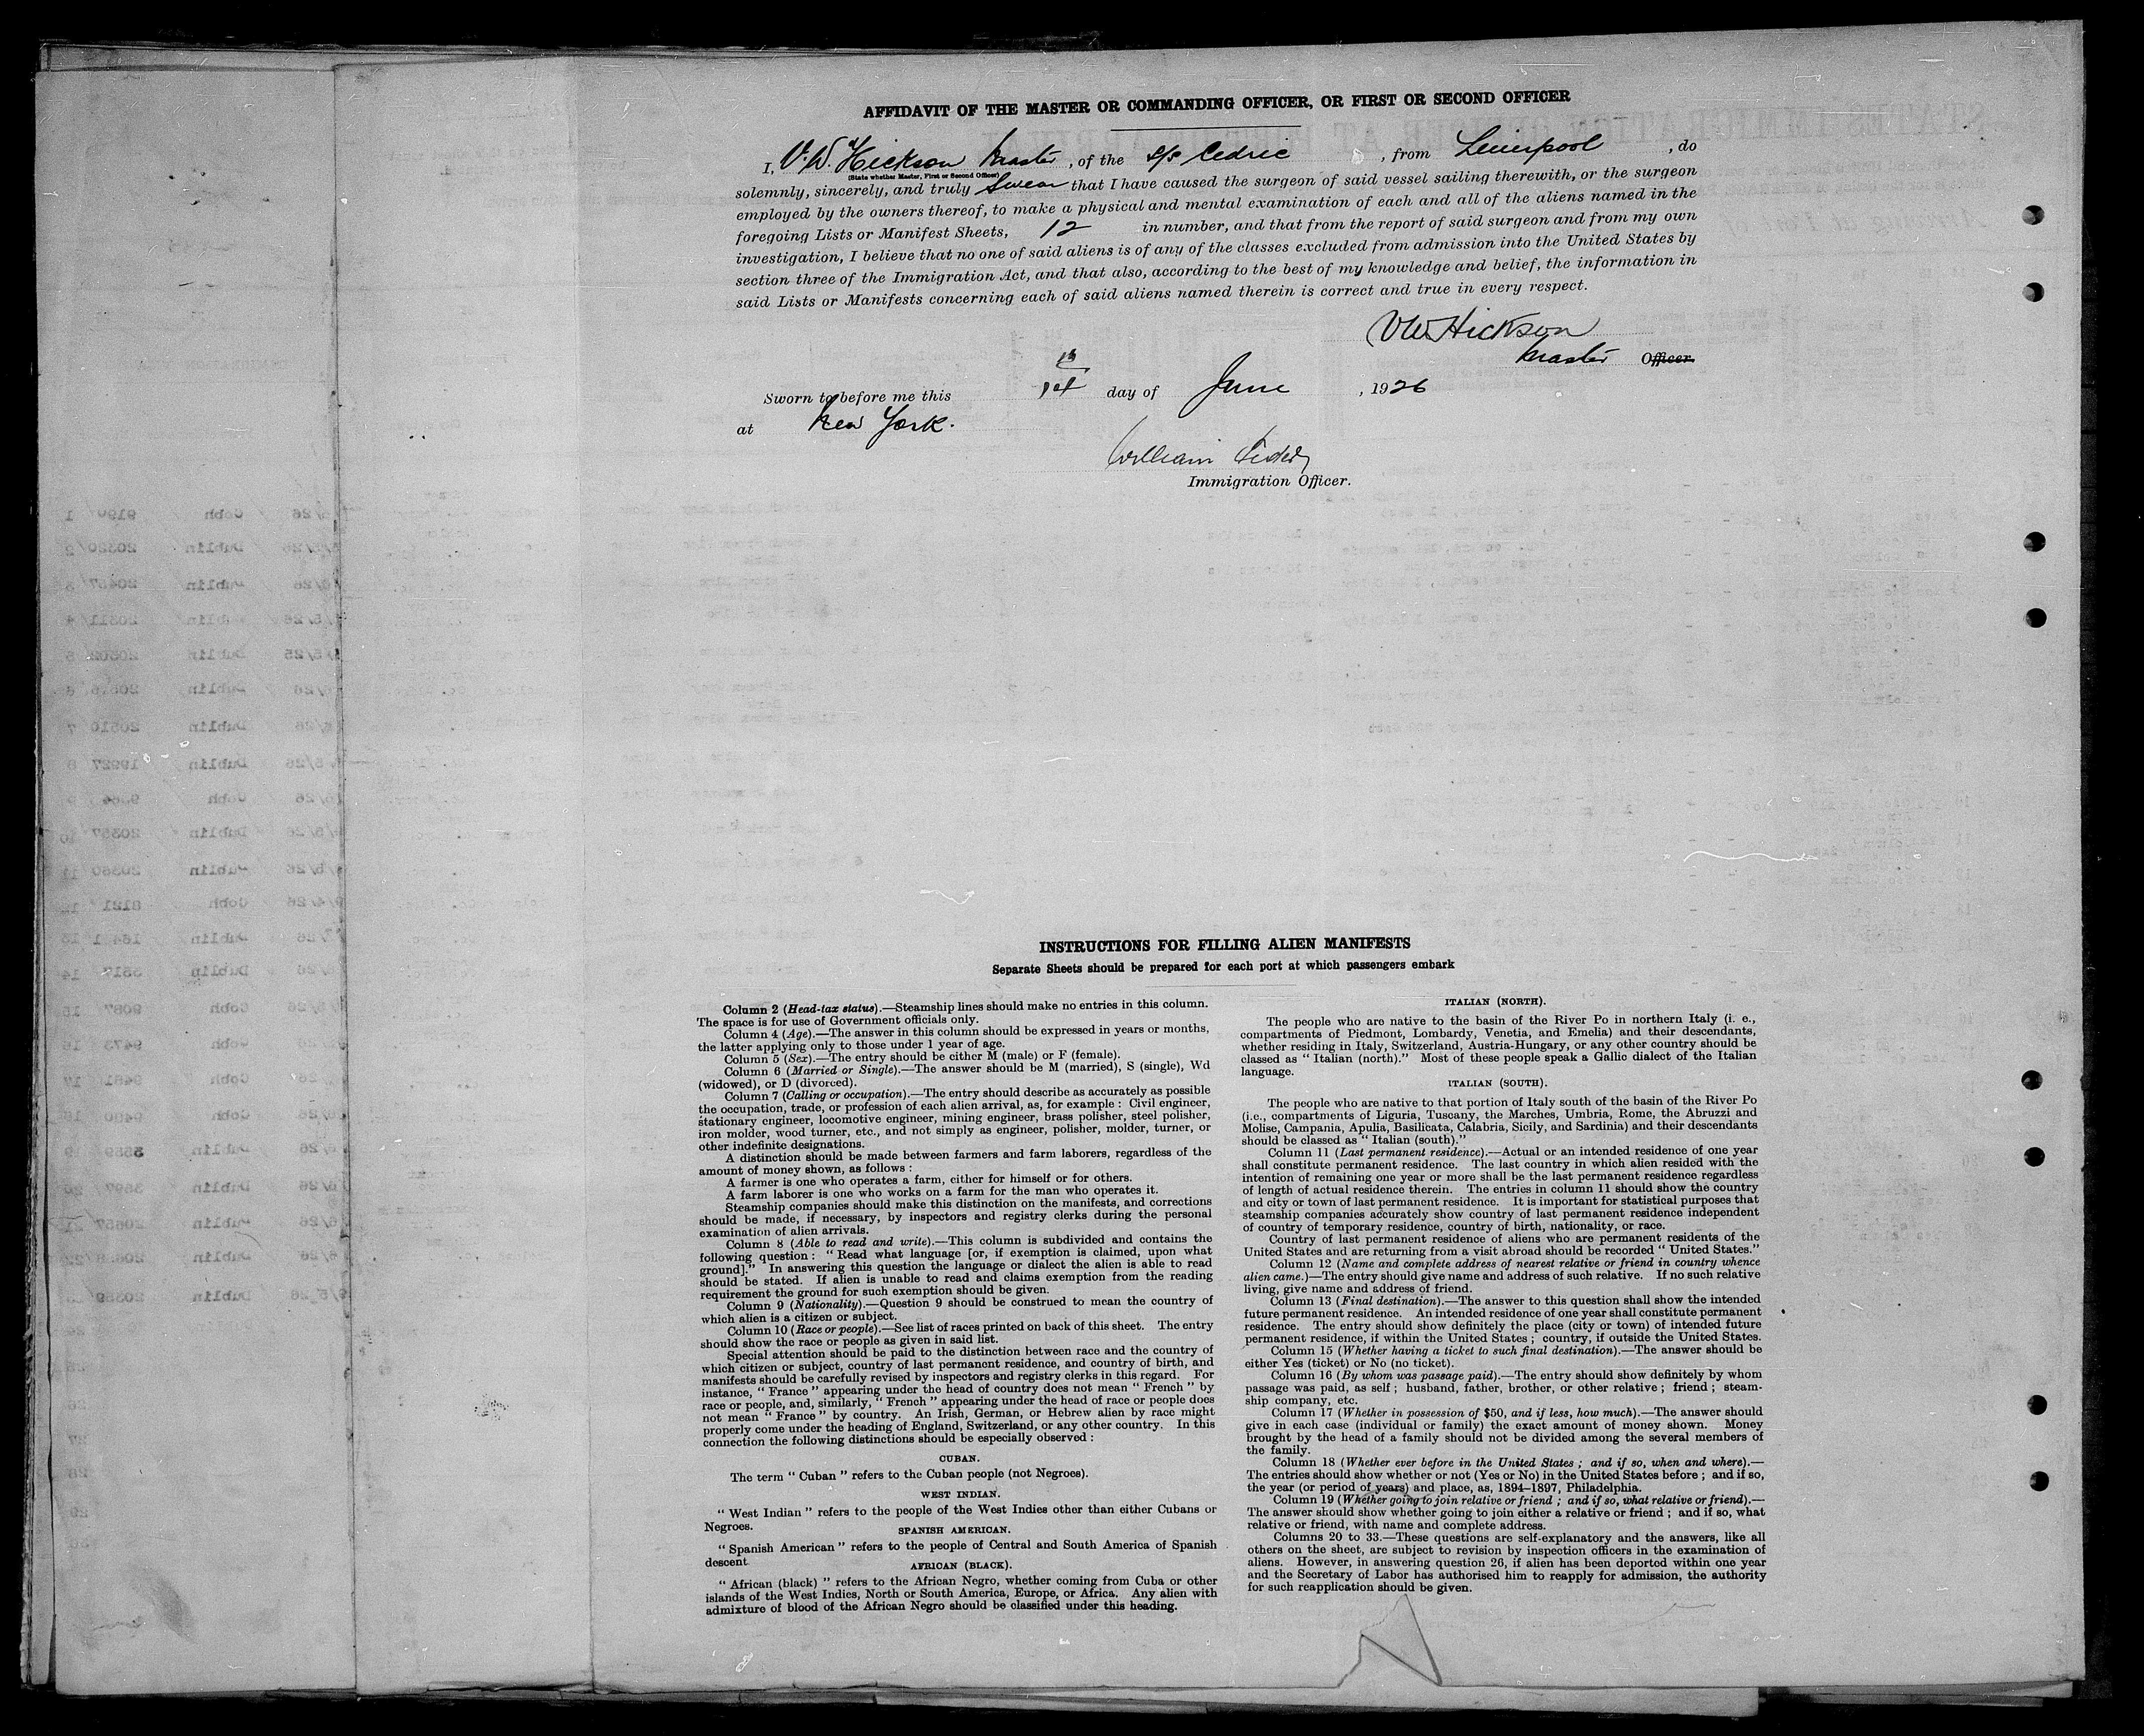 AFFIDAVIT OF THE MASTER OR COMMANDING OFFICER, OR FIRST OR SECOND OFFICER
I, V. W. Hickson Master, of the s/s Cedric, from Liverpool, do
(State whether Master, First or Second Officer)
solemnly, sincerely, and truly swear that I have caused the surgeon of said vessel sailing therewith, or the surgeon
employed by the owners thereof, to make a physical and mental examination of each and all of the aliens named in the
foregoing Lists or Manifest Sheets, 12 in number, and that from the report of said surgeon and from my own
investigation, I believe that no one of said aliens is of any of the classes excluded from admission into the United States by
section three of the Immigration Act, and that also, according to the best of my knowledge and belief, the information in
said Lists or Manifests concerning each of said aliens named therein is correct and true in every respect.
VW Hickson
Master Officer.
Sworn to before me this day of June, 1926
at New York.
William
Immigration Officer.
INSTRUCTIONS FOR FILLING ALIEN MANIFESTS
Separate Sheets should be prepared for each port at which passengers embark
Column 2 (Head-tax status).—Steamship lines should make no entries in this column.
The space is for use of Government officials only.
Column 4 (Age).—The answer in this column should be expressed in years or months,
the latter applying only to those under 1 year of age.
Column 5 (Sex).—The entry should be either M (male) or F (female).
Column 6 (Married or Single).—The answer should be M (married), S (single), Wd
(widowed), or D (divorced).
Column 7 (Calling or occupation).—The entry should describe as accurately as possible
the occupation, trade, or profession of each alien arrival, as, for example : Civil engineer,
stationary engineer, locomotive engineer, mining engineer, brass polisher, steel polisher,
iron molder, wood turner, etc., and not simply as engineer, polisher, molder, turner, or
other indefinite designations.
A distinction should be made between farmers and farm laborers, regardless of the
amount of money shown, as follows :
A farmer is one who operates a farm, either for himself or for others.
A farm laborer is one who works on a farm for the man who operates it.
Steamship companies should make this distinction on the manifests, and corrections
should be made, if necessary, by inspectors and registry clerks during the personal
examination of alien arrivals.
Column 8 (Able to read and write).—This column is subdivided and contains the
following question : “ Read what language [or, if exemption is claimed, upon what
ground].” In answering this question the language or dialect the alien is able to read
should be stated. If alien is unable to read and claims exemption from the reading
requirement the ground for such exemption should be given.
Column 9 (Nationality).—Question 9 should be construed to mean the country of
which alien is a citizen or subject.
Column 10 (Race or people).—See list of races printed on back of this sheet. The entry
should show the race or people as given in said list.
Special attention should be paid to the distinction between race and the country of
which citizen or subject, country of last permanent residence, and country of birth, and
manifests should be carefully revised by inspectors and registry clerks in this regard. For
instance, “ France ” appearing under the head of country does not mean “ French ” by
race or people, and, similarly, “ French ” appearing under the head of race or people does
not mean “ France ” by country. An Irish, German, or Hebrew alien by race might
properly come under the heading of England, Switzerland, or any other country. In this
connection the following distinctions should be especially observed :
CUBAN.
The term “ Cuban ” refers to the Cuban people (not Negroes).
WEST INDIAN.
“ West Indian ” refers to the people of the West Indies other than either Cubans or
Negroes.
SPANISH AMERICAN.
“ Spanish American ” refers to the people of Central and South America of Spanish
descent
AFRICAN (BLACK).
“ African (black) ” refers to the African Negro, whether coming from Cuba or other
islands of the West Indies, North or South America, Europe, or Africa. Any alien with
admixture of blood of the African Negro should be classified under this heading.
ITALIAN (NORTH).
The people who are native to the basin of the River Po in northern Italy (i. e.,
compartments of Piedmont, Lombardy, Venetia, and Emelia) and their descendants,
whether residing in Italy, Switzerland, Austria-Hungary, or any other country should be
classed as “ Italian (north).” Most of these people speak a Gallic dialect of the Italian
language.
ITALIAN (SOUTH).
The people who are native to that portion of Italy south of the basin of the River Po
(i.e., compartments of Liguria, Tuscany, the Marches, Umbria, Rome, the Abruzzi and
Molise, Campania, Apulia, Basilicata, Calabria, Sicily, and Sardinia) and their descendants
should be classed as “ Italian (south).”
Column 11 (Last permanent residence).—Actual or an intended residence of one year
shall constitute permanent residence. The last country in which alien resided with the
intention of remaining one year or more shall be the last permanent residence regardless
of length of actual residence therein. The entries in column 11 should show the country
and city or town of last permanent residence. It is important for statistical purposes that
steamship companies accurately show country of last permanent residence independent
of country of temporary residence, country of birth, nationality, or race.
Country of last permanent residence of aliens who are permanent residents of the
United States and are returning from a visit abroad should be recorded “ United States.”
Column 12 (Name and complete address of nearest relative or friend in country whence
alien came.)—The entry should give name and address of such relative. If no such relative
living, give name and address of friend.
Column 13 (Final destination).—The answer to this question shall show the intended
future permanent residence. An intended residence of one year shall constitute permanent
residence. The entry should show definitely the place (city or town) of intended future
permanent residence, if within the United States ; country, if outside the United States.
Column 15 (Whether having a ticket to such final destination).—The answer should be
either Yes (ticket) or No (no ticket).
Column 16 (By whom was passage paid).—The entry should show definitely by whom
passage was paid, as self ; husband, father, brother, or other relative ; friend ; steam-
ship company, etc.
Column 17 (Whether in possession of $50, and if less, how much).—The answer should
give in each case (individual or family) the exact amount of money shown. Money
brought by the head of a family should not be divided among the several members of
the family.
Column 18 (Whether ever before in the United States ; and if so, when and where).—
The entries should show whether or not (Yes or No) in the United States before ; and if so,
the year (or period of years) and place, as, 1894–1897, Philadelphia.
Column 19 (Whether going to join relative or friend ; and if so, what relative or friend).—
The answer should show whether going to join either a relative or friend ; and if so, what
relative or friend, with name and complete address.
Columns 20 to 33.—These questions are self-explanatory and the answers, like all
others on the sheet, are subject to revision by inspection officers in the examination of
aliens. However, in answering question 26, if alien has been deported within one year
and the Secretary of Labor has authorised him to reapply for admission, the authority
for such reapplication should be given.